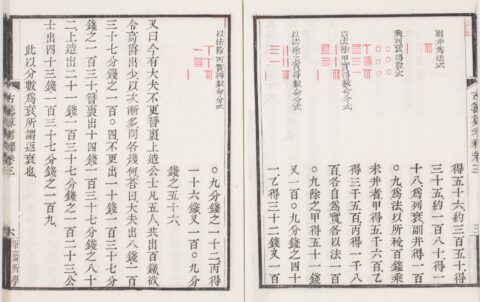 副并為法式
乘列衰得數式
以法除甲實得數命分式
以法除乙實得數命分式
得五十六約三百五十得
三十五約一百八十得一
十八為列衰副并得一百
○九為法以所稅百錢乘
未并者甲得五千六百乙
得三千五百丙得一千八
百各自為實各以法一百
○九除之甲得五十一錢
又一百○九分錢之四十
一乙得三十二錢又一百
以法除丙實得數命分式
○九分錢之一十二丙得
一十六錢又一百○九分
錢之五十六
又曰今有大夫不更簪裹上造公士凡五人共出百錢欲
令高爵出少以次漸多問各幾何荅曰大夫出八錢一百
三十七分錢之一百○四不更出一十錢一百三十七分
錢之一百三十簪裹出十四錢一百三十七分錢之八十
二上造出二十一錢一百三十七分錢之一百二十三公
士出四十三錢一百三十七分錢之一百九
此以分數為衰所謂返衰也
古籌算考釋卷三
六